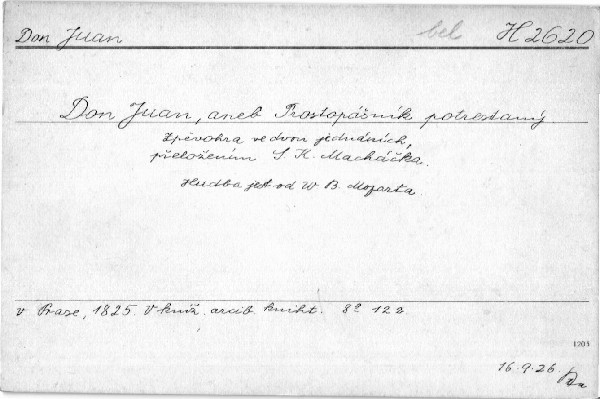 Don Juan bel H 2620
Don Juan, aneb Prostopášník potrestaný
zpěvohra ve dvou jednáních,
přeložením S. K. Macháčka.
Hudba jest od W. B. Mozarta.
v Praze, 1825. V kníž. arcib. kniht. 8° 122
1203
16.9.26.